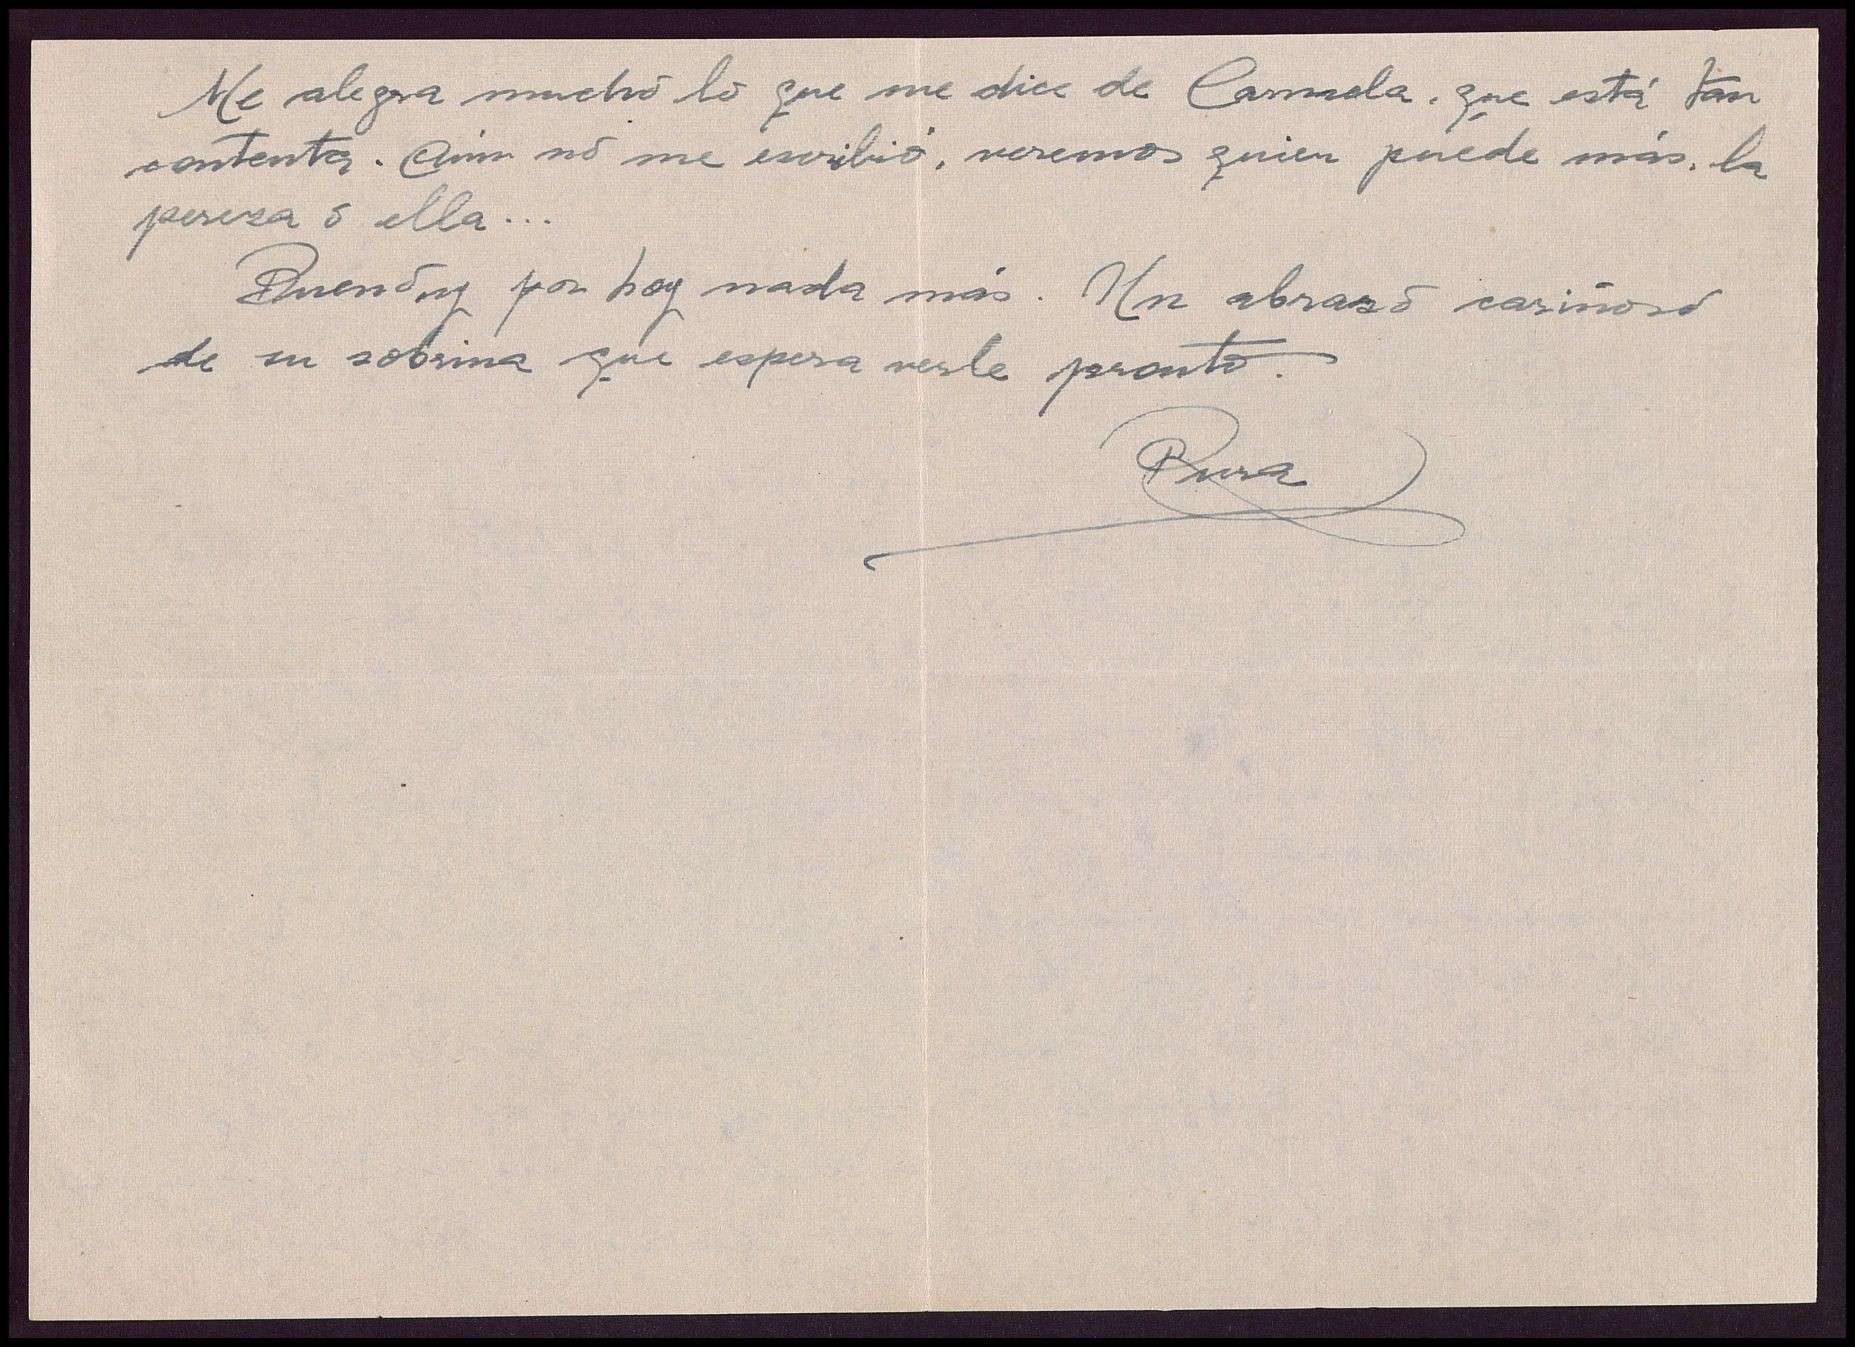 Me alegra mucho lo que me dice de Carmela, que está tan
contenta. Aún no me escribió, veremos quien puede más, la
pereza o ella...
Bueno, y por hoy nada más. Un abrazo cariñoso
de su sobrina que espera verle pronto.
Pura